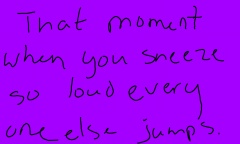 That moment
when you sneeze
so loud every
one else jumps.